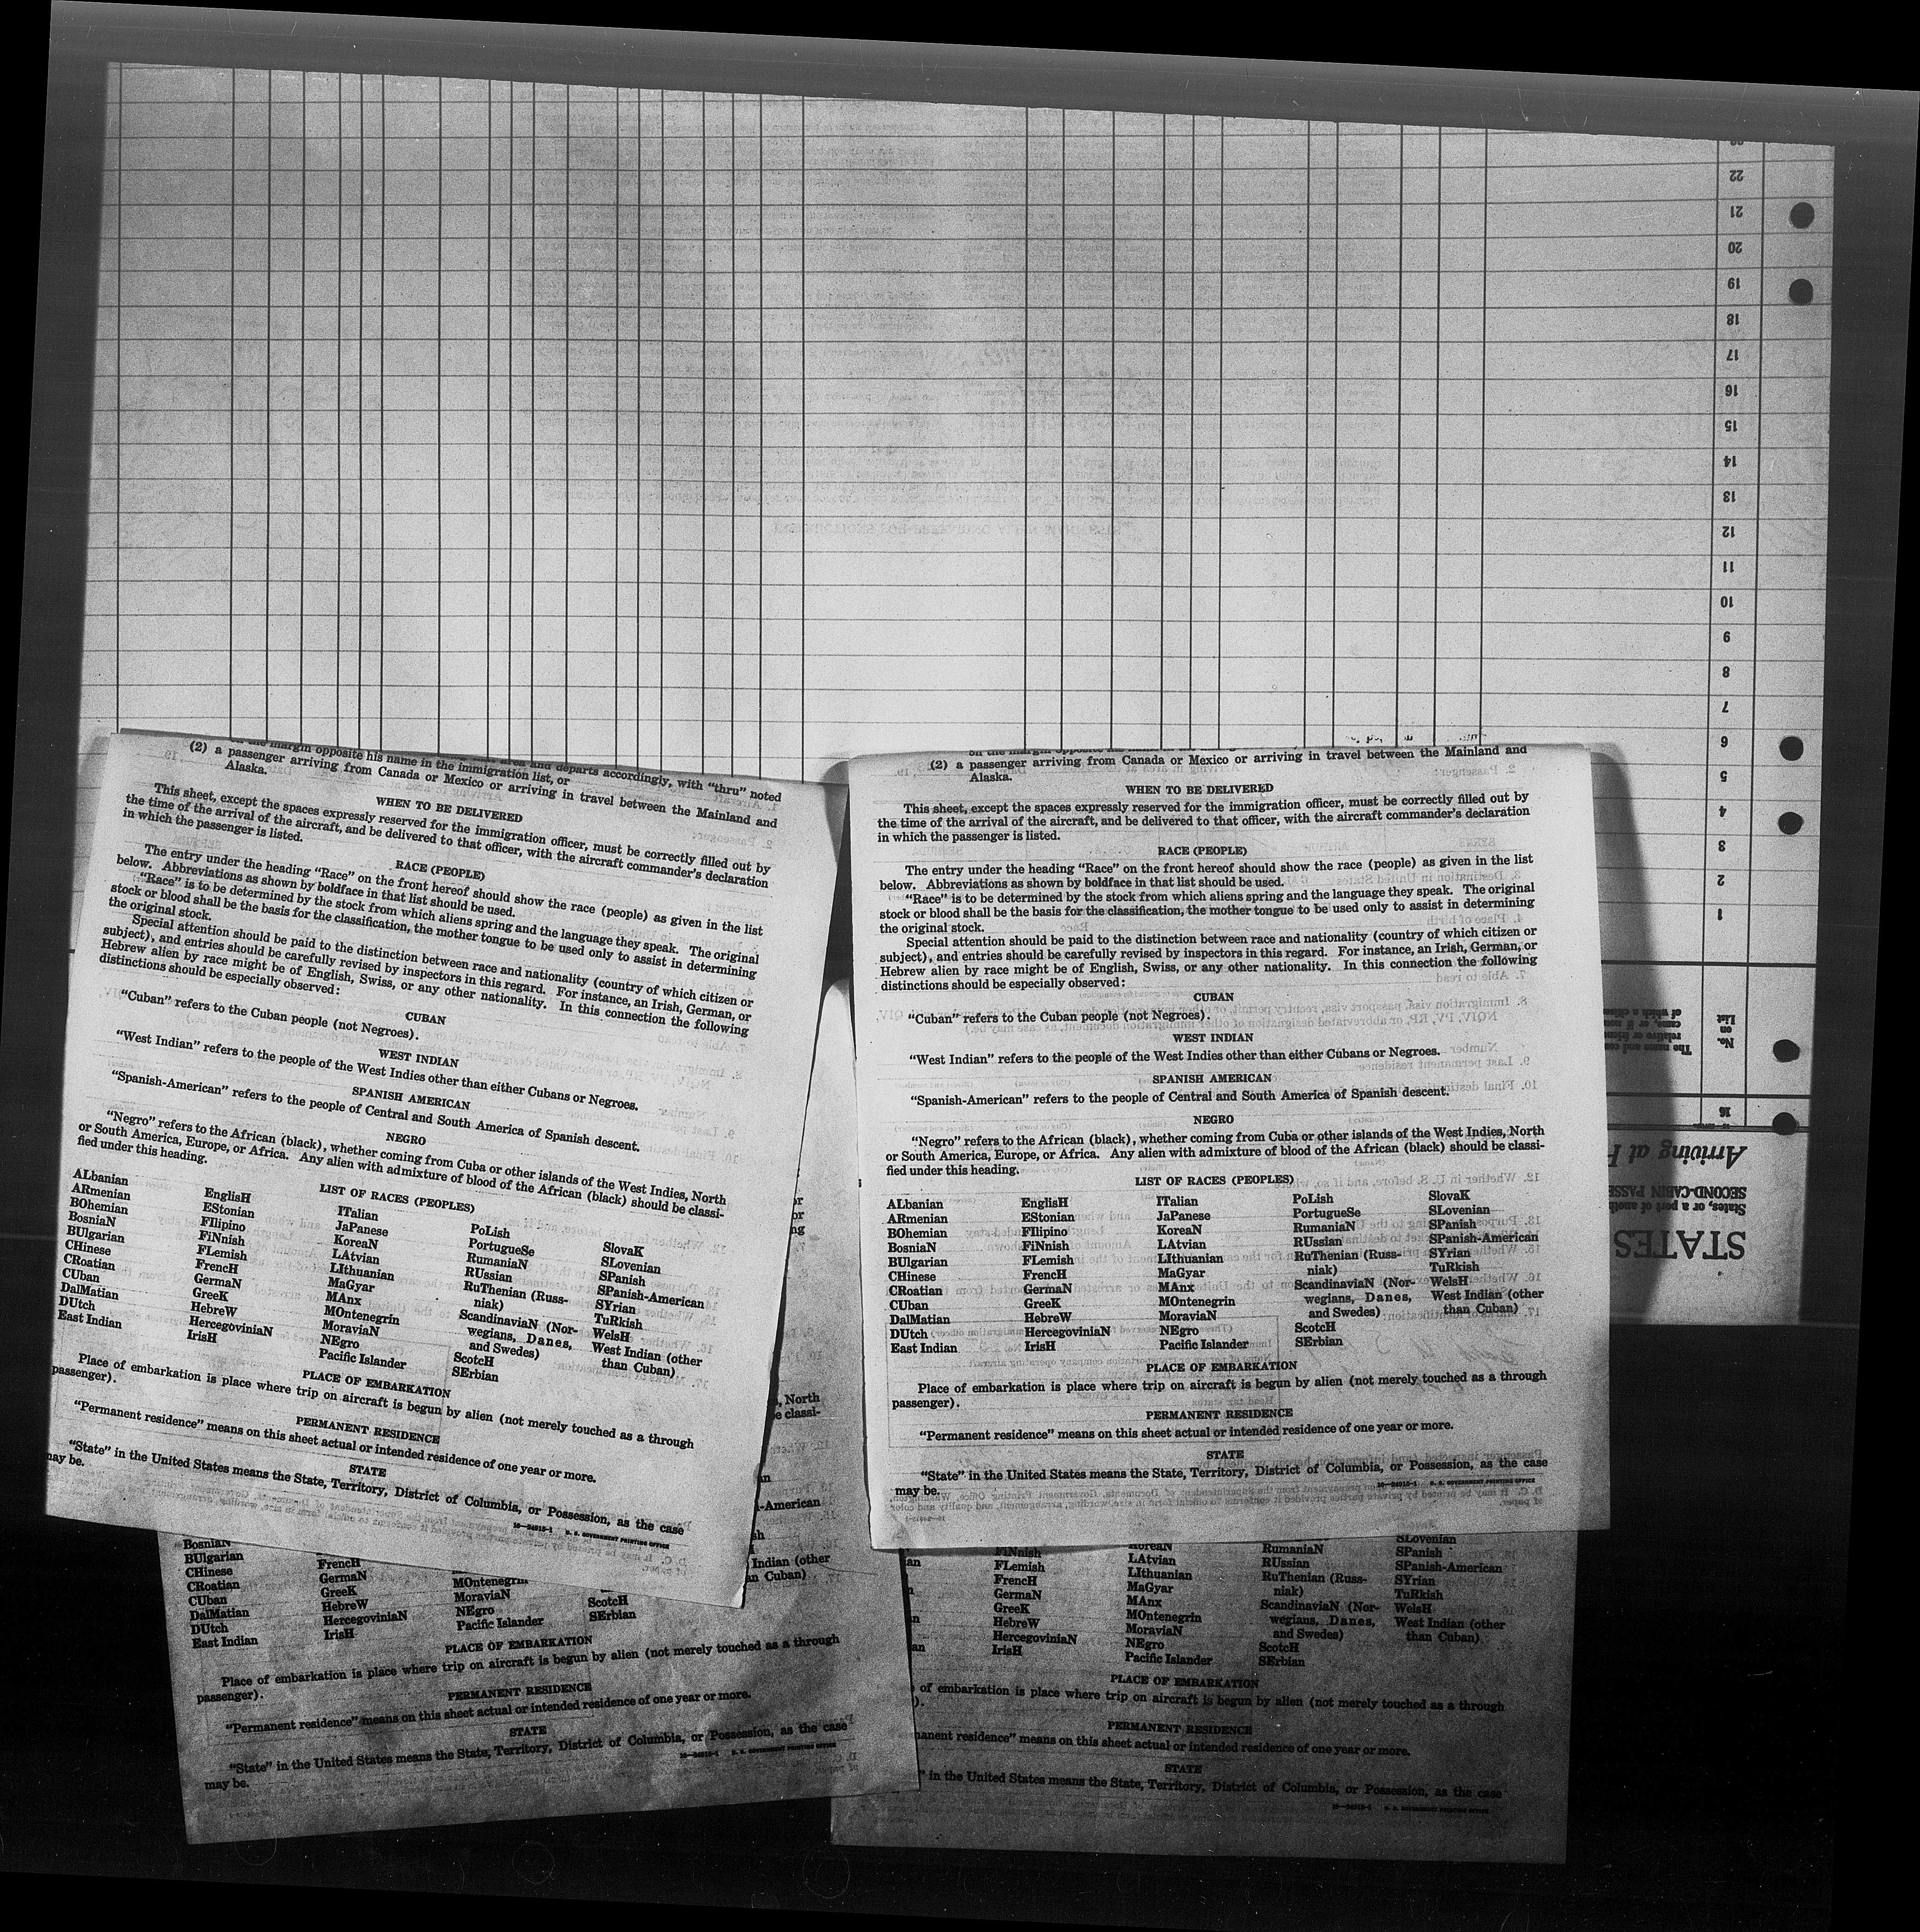 22
21
20
19
18
17
16
15
14
13
12
11
10
9
8
7
6
5
4
3
2
1
No.
on
List
The name and
relative or friend
came, or if none
of which a citizen
16
Arriving at
SECOND-CABIN PASSE
States, or a part of anoth
STATES
on the margin opposite his name in the immigration list, or area and departs accordingly, with "thru" noted
(2) a passenger arriving from Canada or Mexico or arriving in travel between the Mainland and
Alaska.
WHEN TO BE DELIVERED
This sheet, except the spaces expressly reserved for the immigration officer, must be correctly filled out by
the time of the arrival of the aircraft, and be delivered to that officer, with the aircraft commander's declaration
in which the passenger is listed.
RACE (PEOPLE)
The entry under the heading "Race" on the front hereof should show the race (people) as given in the list
below. Abbreviations as shown by boldface in that list should be used.
"Race" is to be determined by the stock from which aliens spring and the language they speak. The original
stock or blood shall be the basis for the classification, the mother tongue to be used only to assist in determining
the original stock.
Special attention should be paid to the distinction between race and nationality (country of which citizen or
subject), and entries should be carefully revised by inspectors in this regard. For instance, an Irish, German, or
Hebrew alien by race might be of English, Swiss, or any other nationality. In this connection the following
distinctions should be especially observed:
CUBAN
"Cuban" refers to the Cuban people (not Negroes).
WEST INDIAN
"West Indian" refers to the people of the West Indies other than either Cubans or Negroes.
SPANISH AMERICAN
"Spanish-American" refers to the people of Central and South America of Spanish descent.
NEGRO
"Negro" refers to the African (black), whether coming from Cuba or other islands of the West Indies, North
or South America, Europe, or Africa. Any alien with admixture of blood of the African (black) should be classi-
fied under this heading.
LIST OF RACES (PEOPLES)
ALbanian
ARmenian
BOhemian
BosniaN
BUlgarian
CHinese
CRoatian
CUban
DalMatian
DUtch
East Indian
EnglisH
EStonian
FIlipino
FiNnish
FLemish
FrencH
GermaN
GreeK
HebreW
HercegoviniaN
IrisH
ITalian
JaPanese
KoreaN
LAtvian
LIthuanian
MaGyar
MAnx
MOntenegrin
MoraviaN
NEgro
Pacific Islander
PoLish
PortugueSe
RumaniaN
RUssian
RuThenian (Russ-
niak)
ScandinaviaN (Nor-
wegians, Danes,
and Swedes)
ScotcH
SErbian
SlovaK
SLovenian
SPanish
SPanish-American
SYrian
TuRkish
WelsH
West Indian (other
than Cuban)
PLACE OF EMBARKATION
Place of embarkation is place where trip on aircraft is begun by alien (not merely touched as a through
passenger).
PERMANENT RESIDENCE
"Permanent residence" means on this sheet actual or intended residence of one year or more.
STATE
"State" in the United States means the State, Territory, District of Columbia, or Possession, as the case
may be.
16—24915-1 U. S. GOVERNMENT PRINTING OFFICE
(2) a passenger arriving from Canada or Mexico or arriving in travel between the Mainland and
Alaska.
WHEN TO BE DELIVERED
This sheet, except the spaces expressly reserved for the immigration officer, must be correctly filled out by
the time of the arrival of the aircraft, and be delivered to that officer, with the aircraft commander's declaration
in which the passenger is listed.
RACE (PEOPLE)
The entry under the heading "Race" on the front hereof should show the race (people) as given in the list
below. Abbreviations as shown by boldface in that list should be used.
"Race" is to be determined by the stock from which aliens spring and the language they speak. The original
stock or blood shall be the basis for the classification, the mother tongue to be used only to assist in determining
the original stock.
Special attention should be paid to the distinction between race and nationality (country of which citizen or
subject), and entries should be carefully revised by inspectors in this regard. For instance, an Irish, German, or
Hebrew alien by race might be of English, Swiss, or any other nationality. In this connection the following
distinctions should be especially observed:
CUBAN
"Cuban" refers to the Cuban people (not Negroes).
WEST INDIAN
"West Indian" refers to the people of the West Indies other than either Cubans or Negroes.
SPANISH AMERICAN
"Spanish-American" refers to the people of Central and South America of Spanish descent.
NEGRO
"Negro" refers to the African (black), whether coming from Cuba or other islands of the West Indies, North
or South America, Europe, or Africa. Any alien with admixture of blood of the African (black) should be classi-
fied under this heading.
LIST OF RACES (PEOPLES)
ALbanian
ARmenian
BOhemian
BosniaN
BUlgarian
CHinese
CRoatian
CUban
DalMatian
DUtch
East Indian
EnglisH
EStonian
FIlipino
FiNnish
FLemish
FrencH
GermaN
GreeK
HebreW
HercegoviniaN
IrisH
ITalian
JaPanese
KoreaN
LAtvian
LIthuanian
MaGyar
MAnx
MOntenegrin
MoraviaN
NEgro
Pacific Islander
PoLish
PortugueSe
RumaniaN
RUssian
RuThenian (Russ-
niak)
ScandinaviaN (Nor-
wegians, Danes,
and Swedes)
ScotcH
SErbian
SlovaK
SLovenian
SPanish
SPanish-American
SYrian
TuRkish
WelsH
West Indian (other
than Cuban)
PLACE OF EMBARKATION
Place of embarkation is place where trip on aircraft is begun by alien (not merely touched as a through
passenger).
PERMANENT RESIDENCE
"Permanent residence" means on this sheet actual or intended residence of one year or more.
STATE
"State" in the United States means the State, Territory, District of Columbia, or Possession, as the case
may be.
16—24915-1 U. S. GOVERNMENT PRINTING OFFICE
, North
e classi-
-American
Indian (other
an Cuban)
BosniaN
BUlgarian
CHinese
CRoatian
CUban
DalMatian
DUtch
East Indian
FrencH
GermaN
GreeK
HebreW
HercegoviniaN
IrisH
MOntenegrin
MoraviaN
NEgro
Pacific Islander
ScotcH
SErbian
PLACE OF EMBARKATION
Place of embarkation is place where trip on aircraft is begun by alien (not merely touched as a through
passenger).
PERMANENT RESIDENCE
"Permanent residence" means on this sheet actual or intended residence of one year or more.
STATE
"State" in the United States means the State, Territory, District of Columbia, or Possession, as the case
may be.
16—24915-1 U. S. GOVERNMENT PRINTING OFFICE
FiNnish
FLemish
FrencH
GermaN
GreeK
HebreW
HercegoviniaN
IrisH
KoreaN
LAtvian
LIthuanian
MaGyar
MAnx
MOntenegrin
MoraviaN
NEgro
Pacific Islander
RumaniaN
RUssian
RuThenian (Russ-
niak)
ScandinaviaN (Nor-
wegians, Danes,
and Swedes)
ScotcH
SErbian
SLovenian
SPanish
SPanish-American
SYrian
TuRkish
WelsH
West Indian (other
than Cuban)
PLACE OF EMBARKATION
of embarkation is place where trip on aircraft is begun by alien (not merely touched as a through
).
PERMANENT RESIDENCE
manent residence" means on this sheet actual or intended residence of one year or more.
STATE
" in the United States means the State, Territory, District of Columbia, or Possession, as the case
16—24915-1 U. S. GOVERNMENT PRINTING OFFICE